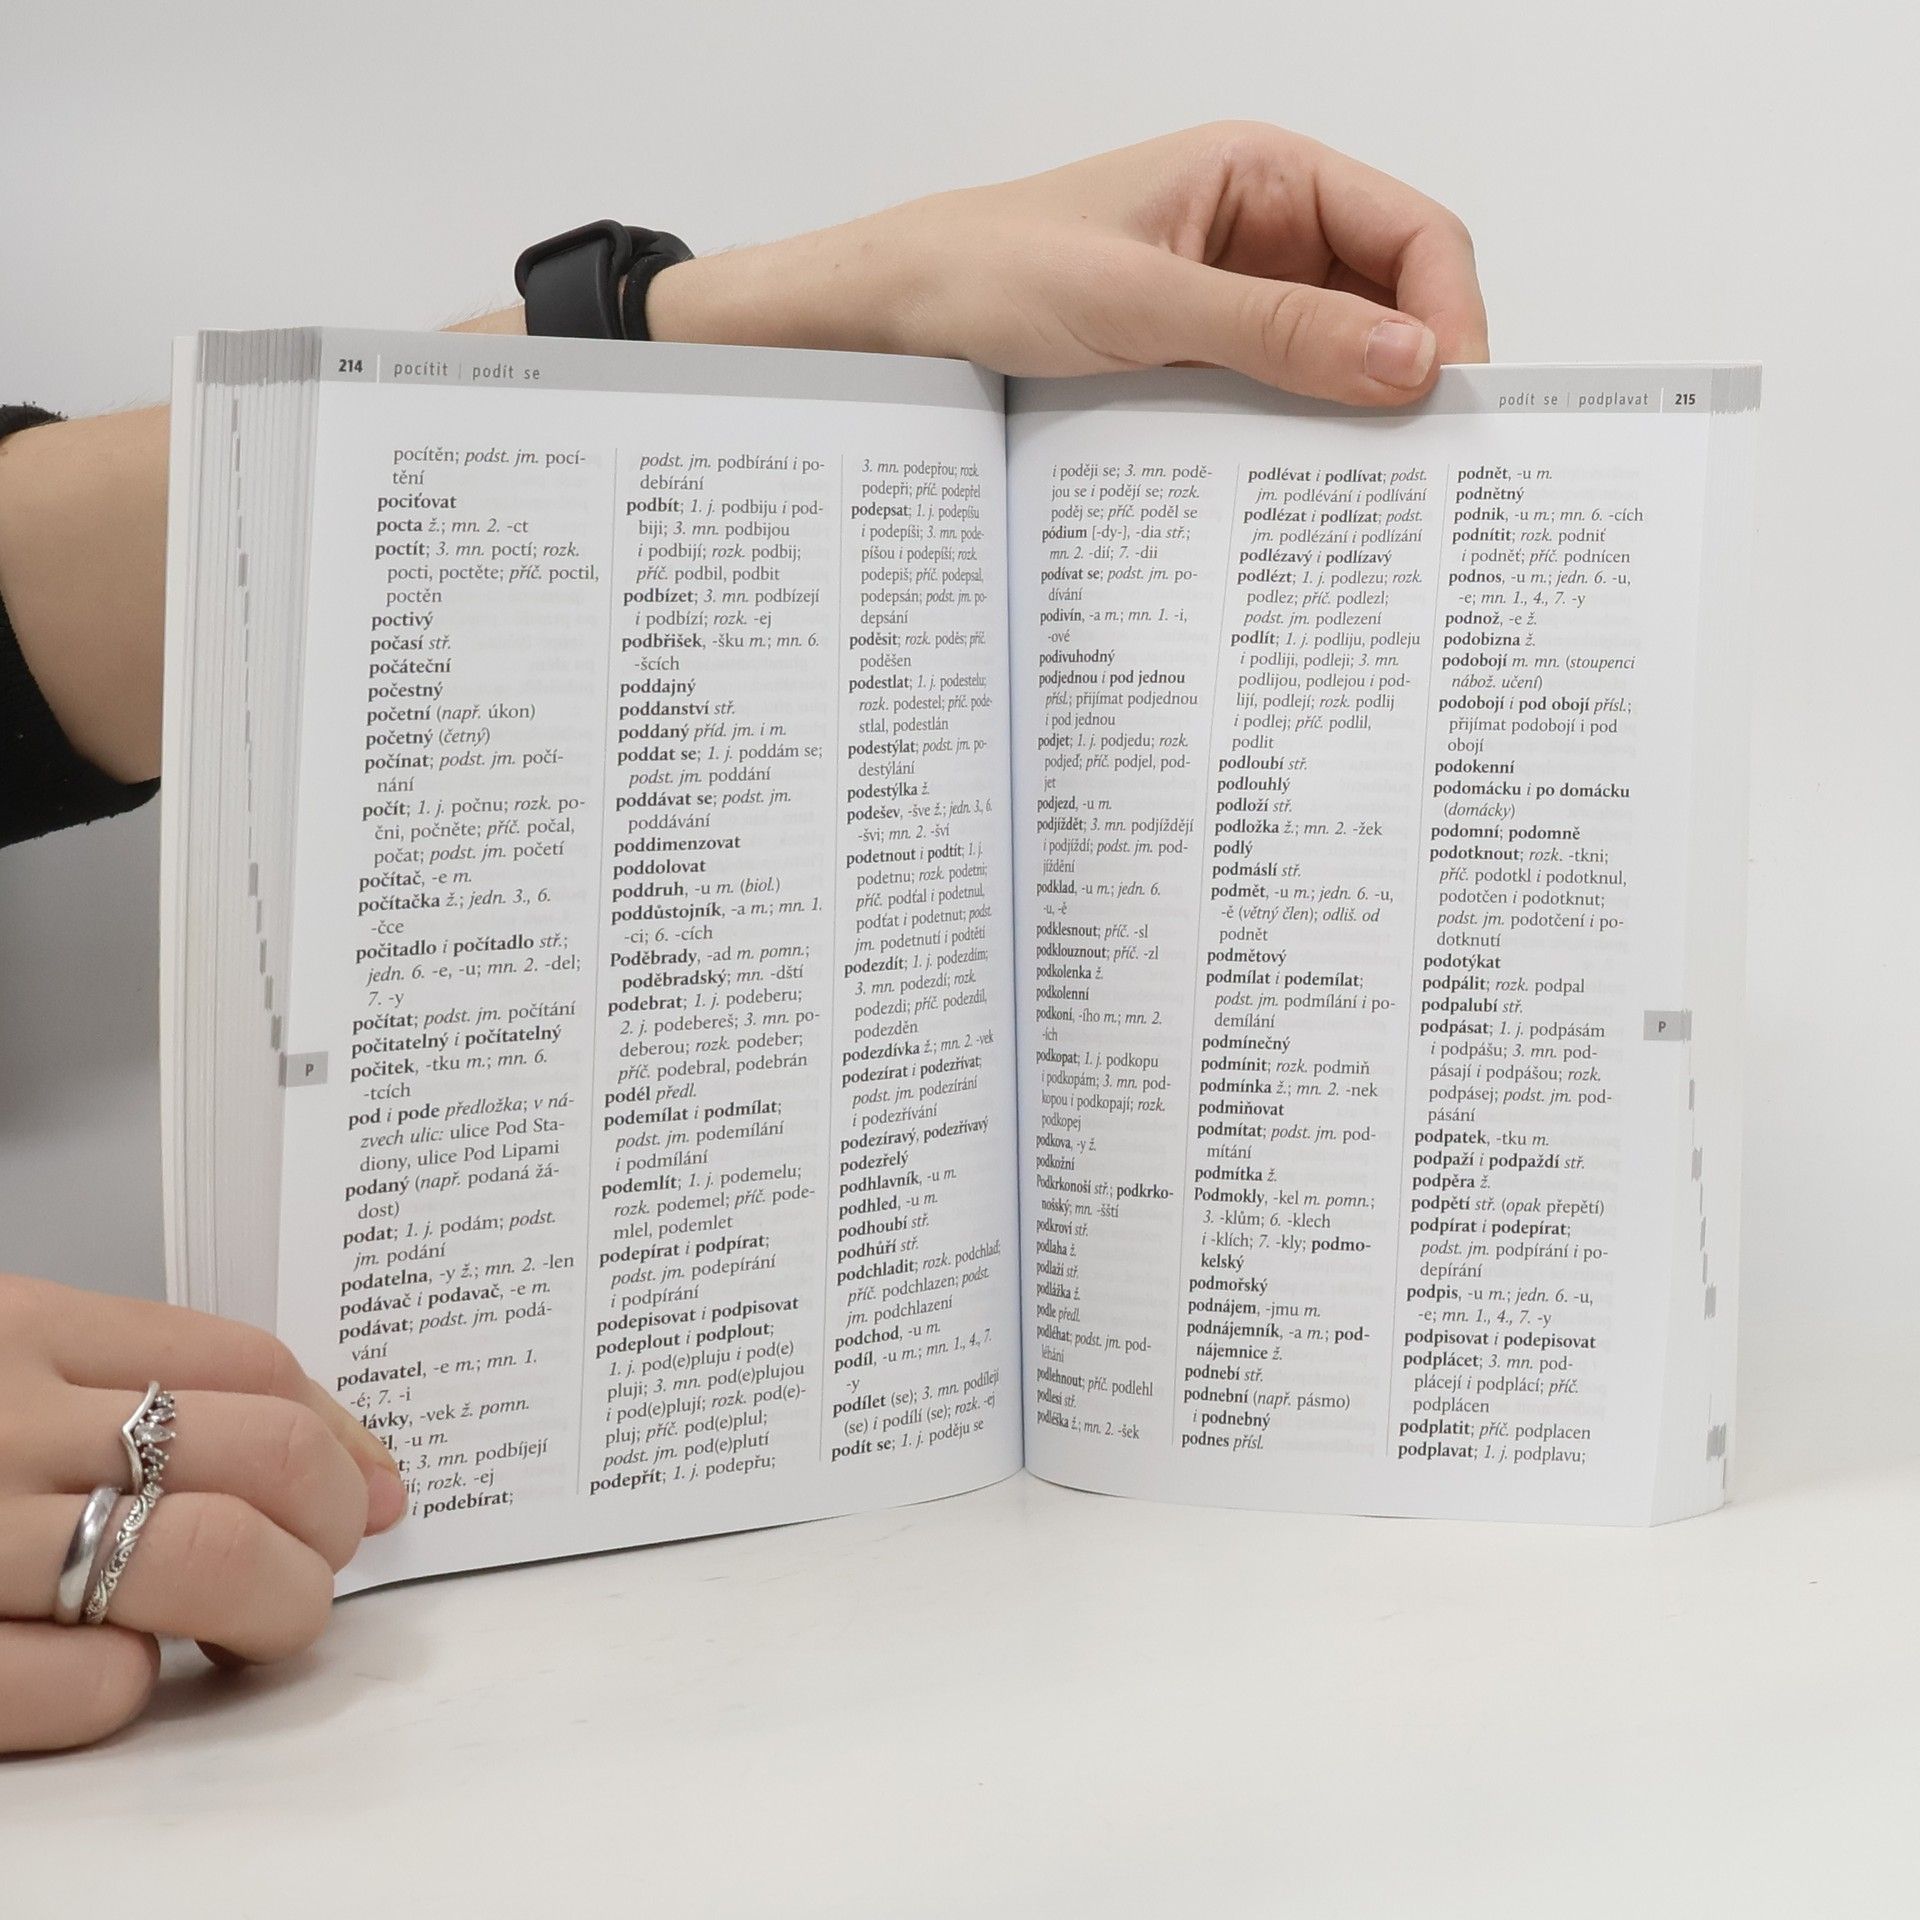 214 | pocítit | podít se
pocítěn; podst. jm. pocí-
tění
pociťovat
pocta ž.; mn. 2. -ct
poctít; 3. mn. poctí; rozk.
pocti, poctěte; příč. poctil,
poctěn
poctivý
počasí stř.
počáteční
počestný
početní (např. úkon)
početný (četný)
počínat; podst. jm. počí-
nání
počít; 1. j. počnu; rozk. po-
čni, počněte; příč. počal,
počat; podst. jm. početí
počítač, -e m.
počítačka ž.; jedn. 3., 6.
-čce
počitadlo i počítadlo stř.;
jedn. 6. -e, -u; mn. 2. -del;
7. -y
počítat; podst. jm. počítání
počitatelný i počítatelný
počitek, -tku m.; mn. 6.
-tcích
pod i pode předložka; v ná-
zvech ulic: ulice Pod Sta-
diony, ulice Pod Lipami
podaný (např. podaná žá-
dost)
podat; 1. j. podám; podst.
jm. podání
podatelna, -y ž.; mn. 2. -len
podávač i podavač, -e m.
podávat; podst. jm. podá-
vání
podavatel, -e m.; mn. 1.
-é; 7. -i
dávky, -vek ž. pomn.
l, -u m.
t; 3. mn. podbíjejí
jí; rozk. -ej
i podebírat;
podst. jm. podbírání i po-
debírání
podbít; 1. j. podbiju i pod-
biji; 3. mn. podbijou
i podbijí; rozk. podbij;
příč. podbil, podbit
podbízet; 3. mn. podbízejí
i podbízí; rozk. -ej
podbřišek, -šku m.; mn. 6.
-šcích
poddajný
poddanství stř.
poddaný příd. jm. i m.
poddat se; 1. j. poddám se;
podst. jm. poddání
poddávat se; podst. jm.
poddávání
poddimenzovat
poddolovat
poddruh, -u m. (biol.)
poddůstojník, -a m.; mn. 1.
-ci; 6. -cích
Poděbrady, -ad m. pomn.;
poděbradský; mn. -dští
podebrat; 1. j. podeberu;
2. j. podebereš; 3. mn. po-
deberou; rozk. podeber;
příč. podebral, podebrán
podél předl.
podemílat i podmílat;
podst. jm. podemílání
i podmílání
podemlít; 1. j. podemelu;
rozk. podemel; příč. pode-
mlel, podemlet
podepírat i podpírat;
podst. jm. podepírání
i podpírání
podepisovat i podpisovat
podeplout i podplout;
1. j. pod(e)pluju i pod(e)
pluji; 3. mn. pod(e)plujou
i pod(e)plují; rozk. pod(e)-
pluj; příč. pod(e)plul;
podst. jm. pod(e)plutí
podepřít; 1. j. podepřu;
3. mn. podepřou; rozk.
podepři; příč. podepřel
podepsat; 1. j. podepíšu
i podepíši; 3. mn. pode-
píšou i podepíší; rozk.
podepiš; příč. podepsal,
podepsán; podst. jm. po-
depsání
poděsit; rozk. poděs; příč.
poděšen
podestlat; 1. j. podestelu;
rozk. podestel; příč. pode-
stlal, podestlán
podestýlat; podst. jm. po-
destýlání
podestýlka ž.
podešev, -šve ž.; jedn. 3., 6.
-švi; mn. 2. -šví
podetnout i podtít; 1. j.
podetnu; rozk. podetni;
příč. podťal i podetnul,
podťat i podetnut; podst.
jm. podetnutí i podtětí
podezdít; 1. j. podezdím;
3. mn. podezdí; rozk.
podezdi; příč. podezdil,
podezděn
podezdívka ž.; mn. 2. -vek
podezírat i podezřívat;
podst. jm. podezírání
i podezřívání
podezíravý, podezřívavý
podezřelý
podhlavník, -u m.
podhled, -u m.
podhoubí stř.
podhůří stř.
podchladit; rozk. podchlaď;
příč. podchlazen; podst.
jm. podchlazení
podchod, -u m.
podíl, -u m.; mn. 1., 4., 7.
-y
podílet (se); 3. mn. podílejí
(se) i podílí (se); rozk. -ej
podít se; 1. j. poděju se
P
podít se | podplavat | 215
i poději se; 3. mn. podě-
jou se i podějí se; rozk.
poděj se; příč. poděl se
pódium [-dy-], -dia stř.;
mn. 2. -dií; 7. -dii
podívat se; podst. jm. po-
dívání
podivín, -a m.; mn. 1. -i,
-ové
podivuhodný
podjednou i pod jednou
přísl.; přijímat podjednou
i pod jednou
podjet; 1. j. podjedu; rozk.
podjeď; příč. podjel, pod-
jet
podjezd, -u m.
podjíždět; 3. mn. podjíždějí
i podjíždí; podst. jm. pod-
jíždění
podklad, -u m.; jedn. 6.
-u, -ě
podklesnout; příč. -sl
podklouznout; příč. -zl
podkolenka ž.
podkolenní
podkoní, -ího m.; mn. 2.
-ích
podkopat; 1. j. podkopu
i podkopám; 3. mn. pod-
kopou i podkopají; rozk.
podkopej
podkova, -y ž.
podkožní
Podkrkonoší stř.; podkrko-
nošský; mn. -šští
podkroví stř.
podlaha ž.
podlaží stř.
podlážka ž.
podle předl.
podléhat; podst. jm. pod-
léhání
podlehnout; příč. podlehl
podlesí stř.
podléška ž.; mn. 2. -šek
podlévat i podlívat; podst.
jm. podlévání i podlívání
podlézat i podlízat; podst.
jm. podlézání i podlízání
podlézavý i podlízavý
podlézt; 1. j. podlezu; rozk.
podlez; příč. podlezl;
podst. jm. podlezení
podlít; 1. j. podliju, podleju
i podliji, podleji; 3. mn.
podlijou, podlejou i pod-
lijí, podlejí; rozk. podlij
i podlej; příč. podlil,
podlit
podloubí stř.
podlouhlý
podloží stř.
podložka ž.; mn. 2. -žek
podlý
podmáslí stř.
podmět, -u m.; jedn. 6. -u,
-ě (větný člen); odliš. od
podnět
podmětový
podmílat i podemílat;
podst. jm. podmílání i po-
demílání
podmínečný
podmínit; rozk. podmiň
podmínka ž.; mn. 2. -nek
podmiňovat
podmítat; podst. jm. pod-
mítání
podmítka ž.
Podmokly, -kel m. pomn.;
3. -klům; 6. -klech
i -klích; 7. -kly; podmo-
kelský
podmořský
podnájem, -jmu m.
podnájemník, -a m.; pod-
nájemnice ž.
podnebí stř.
podnební (např. pásmo)
i podnebný
podnes přísl.
podnět, -u m.
podnětný
podnik, -u m.; mn. 6. -cích
podnítit; rozk. podniť
i podněť; příč. podnícen
podnos, -u m.; jedn. 6. -u,
-e; mn. 1., 4., 7. -y
podnož, -e ž.
podobizna ž.
podobojí m. mn. (stoupenci
nábož. učení)
podobojí i pod obojí přísl.;
přijímat podobojí i pod
obojí
podokenní
podomácku i po domácku
(domácky)
podomní; podomně
podotknout; rozk. -tkni;
příč. podotkl i podotknul,
podotčen i podotknut;
podst. jm. podotčení i po-
dotknutí
podotýkat
podpálit; rozk. podpal
podpalubí stř.
podpásat; 1. j. podpásám
i podpášu; 3. mn. pod-
pásají i podpášou; rozk.
podpásej; podst. jm. pod-
pásání
podpatek, -tku m.
podpaží i podpaždí stř.
podpěra ž.
podpětí stř. (opak přepětí)
podpírat i podepírat;
podst. jm. podpírání i po-
depírání
podpis, -u m.; jedn. 6. -u,
-e; mn. 1., 4., 7. -y
podpisovat i podepisovat
podplácet; 3. mn. pod-
plácejí i podplácí; příč.
podplácen
podplatit; příč. podplacen
podplavat; 1. j. podplavu;
P